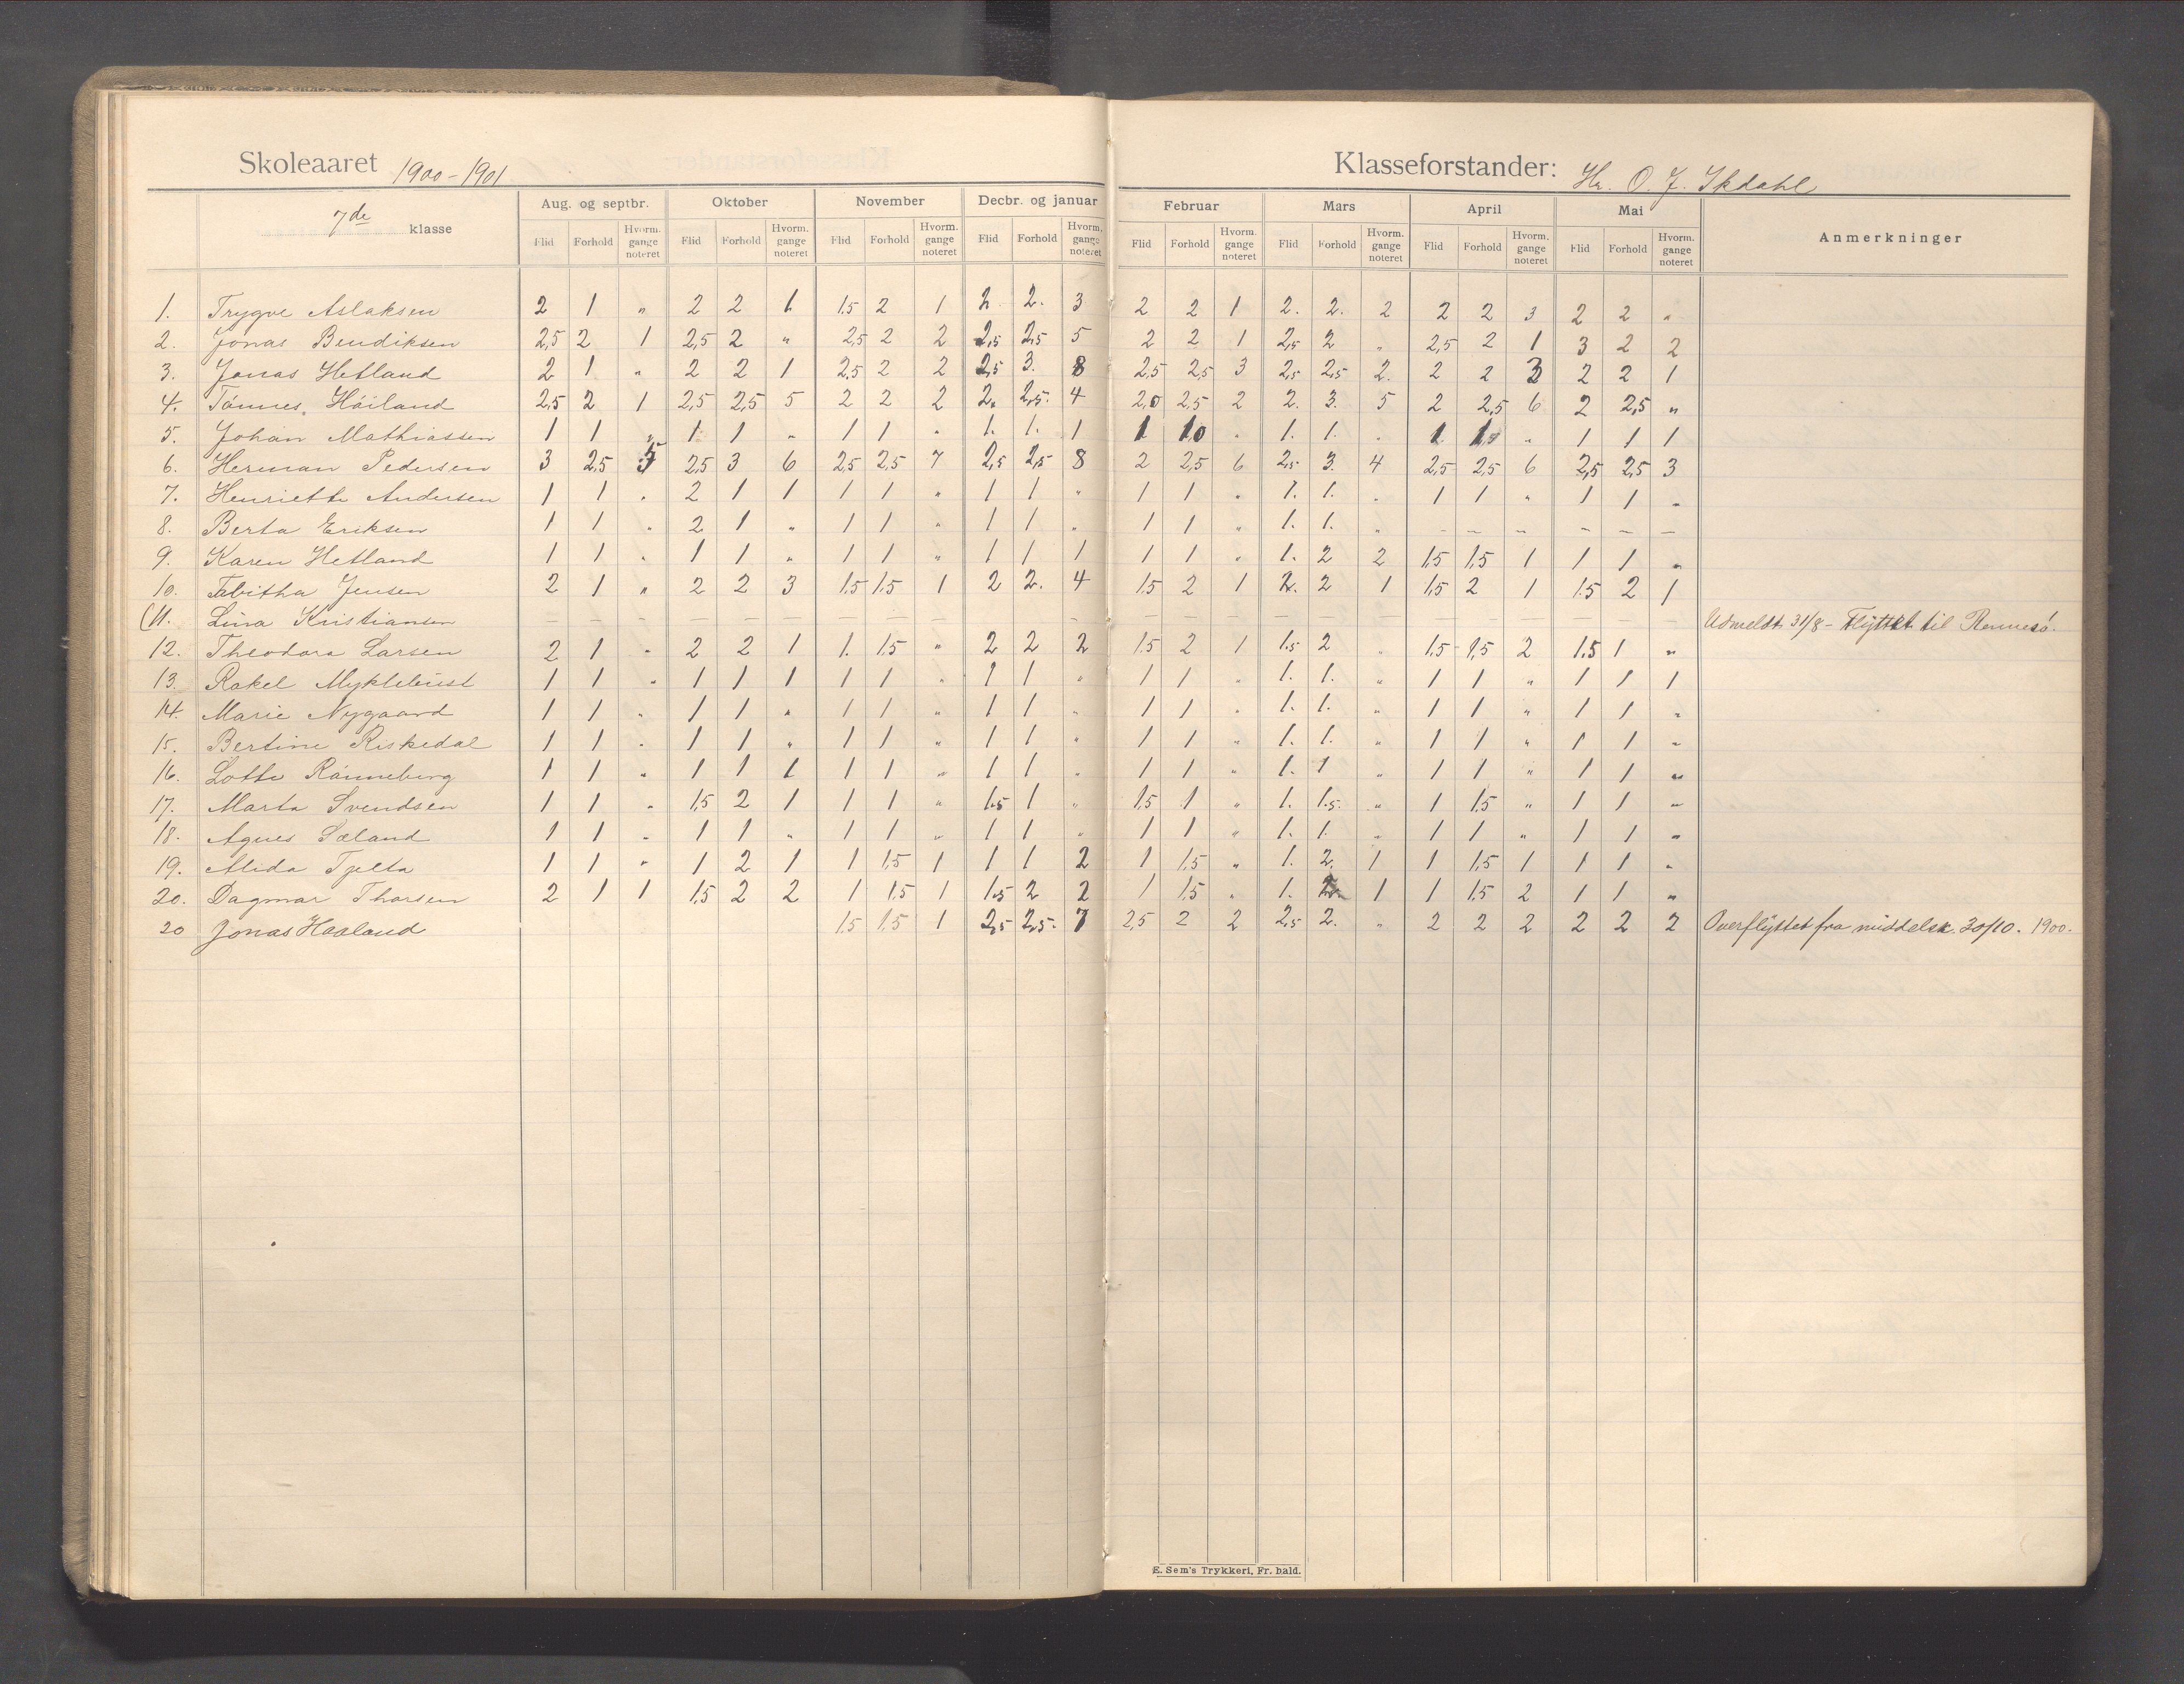 Skoleaaret 1900-1901 Klasseforstander: Hr. O. J. Skdahl
7de klasse Aug. og septbr. Oktober November Decbr. og januar Februar Mars April Mai Anmerkninger
Flid Forhold Hvorm. gange noteret Flid Forhold Hvorm. gange noteret Flid Forhold Hvorm. gange noteret Flid Forhold Hvorm. gange noteret Flid Forhold Hvorm. gange noteret Flid Forhold Hvorm. gange noteret Flid Forhold Hvorm. gange noteret Flid Forhold Hvorm. gange noteret
1. Trygve Aslaksen 2 1 " 2 2 1 1,5 2 1 2 2. 3 2 2 1 2. 2. 2 2 2 3 2 2 "
2. Jonas Bendiksen 2,5 2 1 2,5 2 " 2,5 2 2 2,5 2,5 5 2 2 1 2,5 2 " 2,5 2 1 3 2 2
3. Jonas Hetland 2 1 " 2 2 1 2,5 2 2 2,5 3. 8 2,5 2,5 3 2,5 2,5 2. 2 2 3 2 2 1
4. Tönnes Höiland 2,5 2 1 2,5 2,5 5 2 2 2 2. 2,5. 4 2,0 2,5 2 2. 3. 5 2 2,5 6 2 2,5 "
5. Johan Mathiassen 1 1 " 1 1 " 1 1 " 1. 1. 1 1 1,0 " 1. 1. " 1 1,0 " 1 1 1
6. Herman Pedersen 3 2,5 5 2,5 3 6 2,5 2,5 7 2,5 2,5 8 2 2,5 6 2,5 3. 4 2,5 2,5 6 2,5 2,5 3
7. Henriette Andersen 1 1 " 2 1 1 1 1 " 1 1 " 1 1 " 1. 1. " 1 1 " 1 1 "
8. Berta Eriksen 1 1 " 2 1 " 1 1 " 1 1 " 1 1 " 1. 1. " – – – – – –
9. Karen Hetland 1 1 " 1 1 " 1 1 " 1 1 1 1 1 " 1. 2 2 1,5 1,5 1 1 1 "
10. Tabitha Jensen 2 1 " 2 2 3 1,5 1,5 1 2 2. 4 1,5 2 1 2. 2 1 1,5 2 1 1,5 2 1
(11. Lina Kristiansen – – – – – – – – – – – – – – – – – – – – – – – – Udmeldt 31/8 – Flyttet til Rennesö.
12. Theodora Larsen 2 1 " 2 2 1 1. 1,5 " 2 2 2 1,5 2 1 1,5 2 " 1,5 1,5 2 1,5 1 "
13. Rakel Myklebust 1 1 " 1 1 1 1 1 " 1 1 " 1 1 " 1. 1. " 1 1 " 1 1 1
14. Marie Nygaard 1 1 " 1 1 " 1 1 " 1 1 " 1 1 " 1. 1. " 1 1 " 1 1 "
15. Bertine Riskedal 1 1 " 1 1 " 1 1 " 1 1 " 1 1 " 1. 1. " 1 1 " 1 1 "
16. Lotte Rönneberg 1 1 " 1 1 1 1 1 " 1 1 " 1 1 " 1. 1 " 1 1 " 1 1 "
17. Marta Svendsen 1 1 " 1,5 2 1 1 1 " 1,5 1 " 1,5 1 " 1. 1,5. " 1 1,5 " 1 1 "
18. Agnes Sæland 1 1 " 1 1 " 1 1 " 1 1 " 1 1 " 1. 1. " 1 1 " 1 1 "
19. Alida Tjelta 1 1 " 1 2 1 1 1,5 1 1 1 2 1 1,5 " 1. 2. 1 1 1,5 1 1 1 "
20. Dagmar Thorsen 2 1 1 1,5 2 2 1 1,5 1 1,5 2 2 1 1,5 " 1. 1 1 1,5 2 1 1 "
20 Jonas Haaland 1,5 1,5 1 2,5 2,5. 7 2,5 2 2 2,5 2. " 2 2 2 2 2 2 Overflyttet fra middelsk. 30/10. 1900.
E. Sem's Trykkeri, Fr. hald.